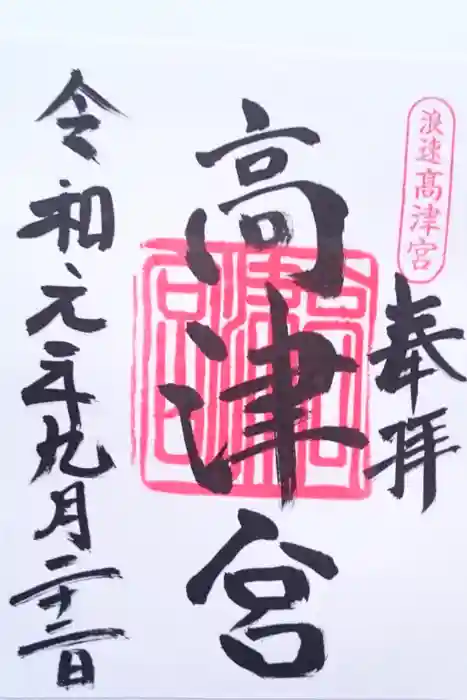 浪速高津宮
奉拝
高津宮
令和元年九月二十二日